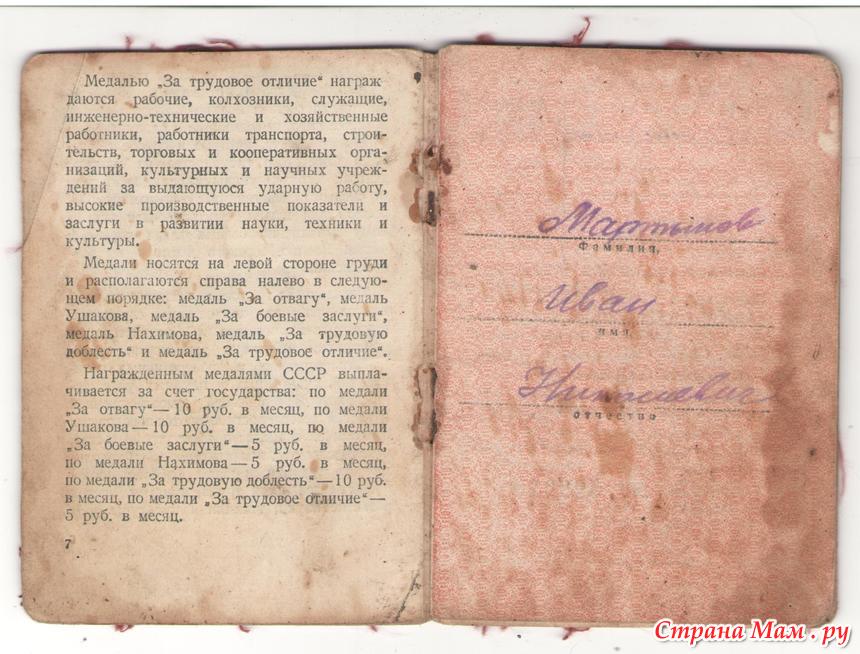 Медалью „За трудовое отличие“ награж
даются рабочие, колхозники, служащие,
инженерно-технические и хозяйственные
работники, работники транспорта, строи-
тельств, торговых и кооперативных орга-
низаций, культурных и научных учреж-
дений за выдающуюся ударную работу,
высокие производственные показатели и
заслуги в развитии науки, техники и
культуры.
Медали носятся на левой стороне груди
и располагаются справа налево в следую-
щем порядке: медаль „За отвагу“, медаль
Ушакова, медаль „За боевые заслуги“,
медаль Нахимова, медаль „За трудовую
доблесть“ и медаль „За трудовое отличие“.
Награжденным медалями СССР выпла-
чивается за счет государства: по медали
„За отвагу“—10 руб. в месяц, по медали
Ушакова—10 руб. в месяц, по медали
„За боевые заслуги“—5 руб. в месяц,
по медали Нахимова—5 руб. в месяц,
по медали „За трудовую доблесть“—10 руб.
в месяц, по медали „За трудовое отличие“—
5 руб. в месяц.
7
Мартынов
Фамилия,
Иван
имя
Николаевич
отчество
Страна Мам.ру